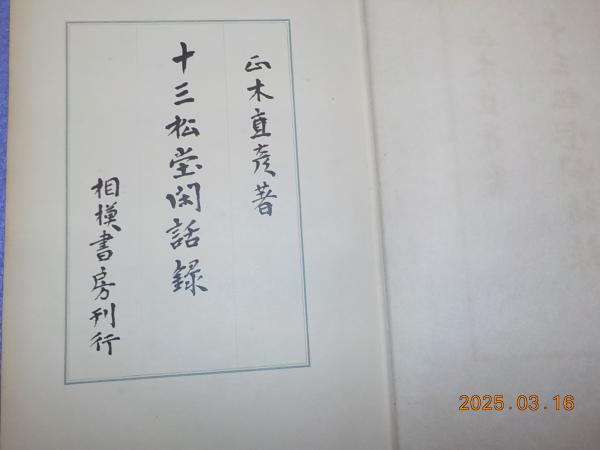 正木直彦著
十三松堂閑話録
相模書房刊行
2025.03.16